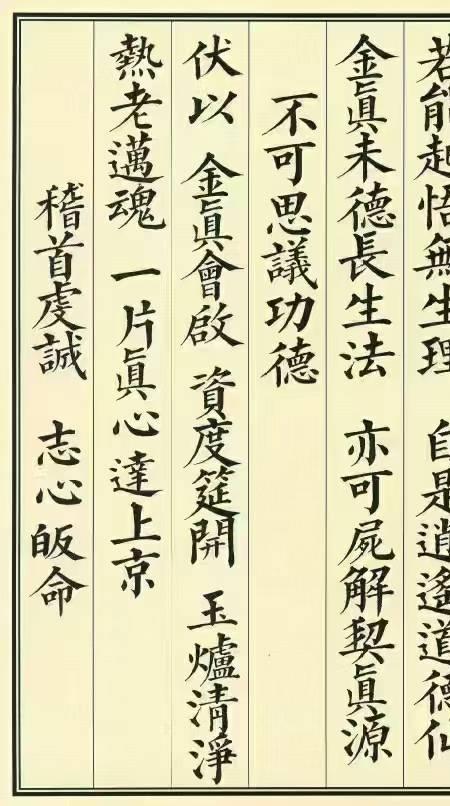 若能起悟無生理 自是逍遙道德仙
金眞未德長生法 亦可屍解契眞源
不可思議功德
伏以 金眞會啟 資度筵開 玉爐清淨
熱老邁魂 一片眞心達上京
稽首虔誠 志心皈命